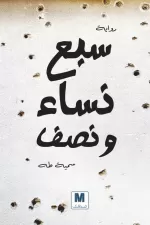 رواية
سبع
نساء
ونصف
سمية طه
M